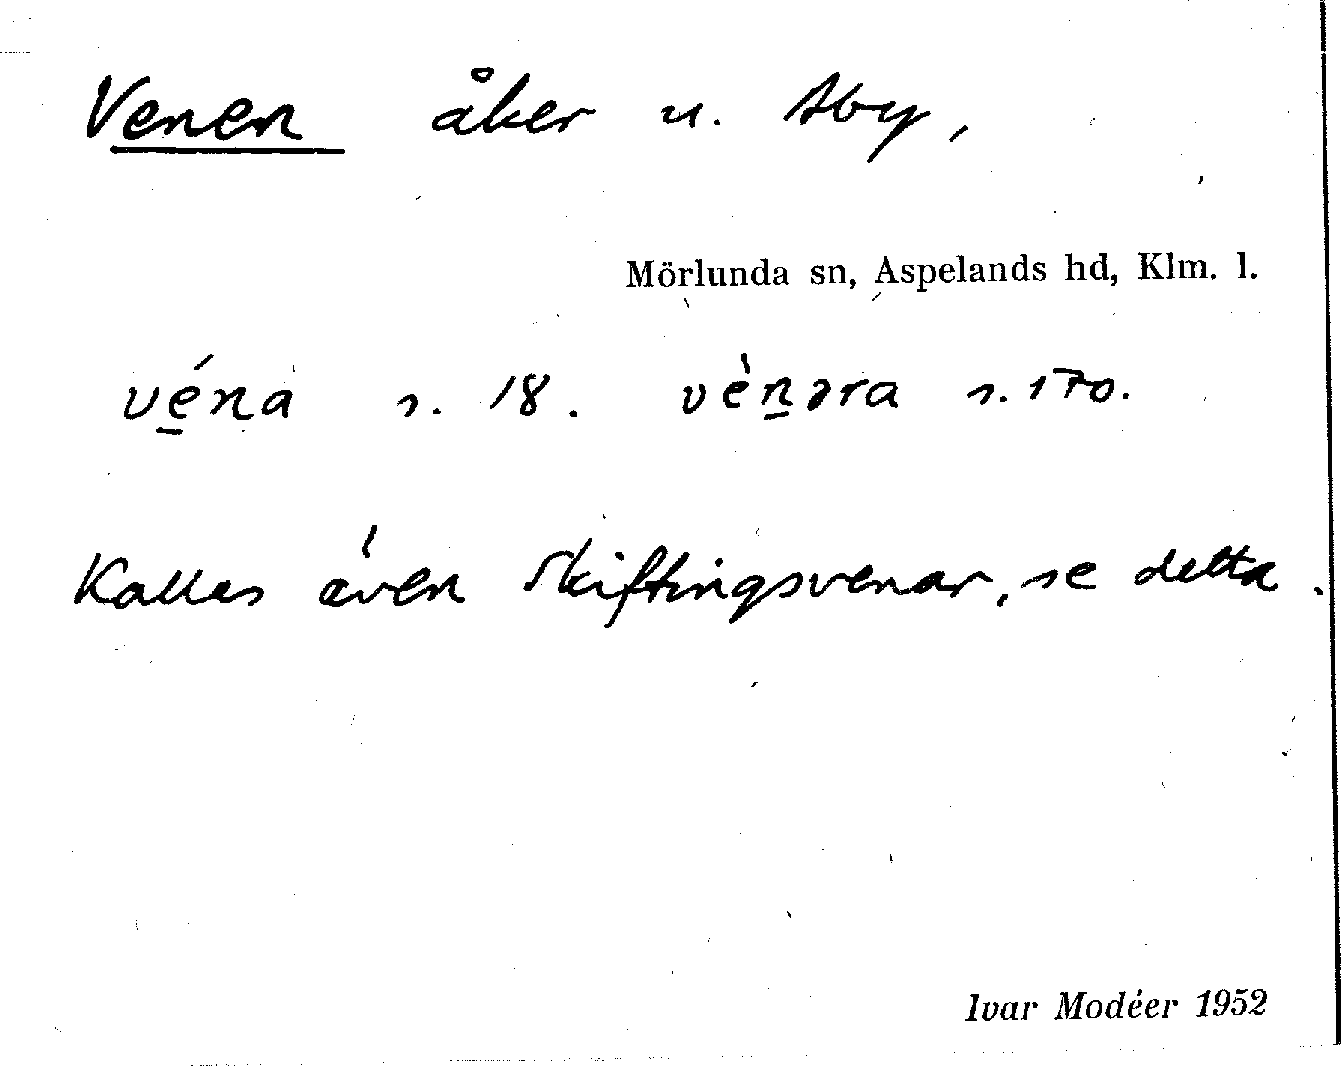 Venen åker u. Åby,
Mörlunda sn, Aspelands hd, Klm. l.
véna s. 18. vènəra s. 170.
Kallas även Skiftingsvenar, se detta.
Ivar Modéer 1952